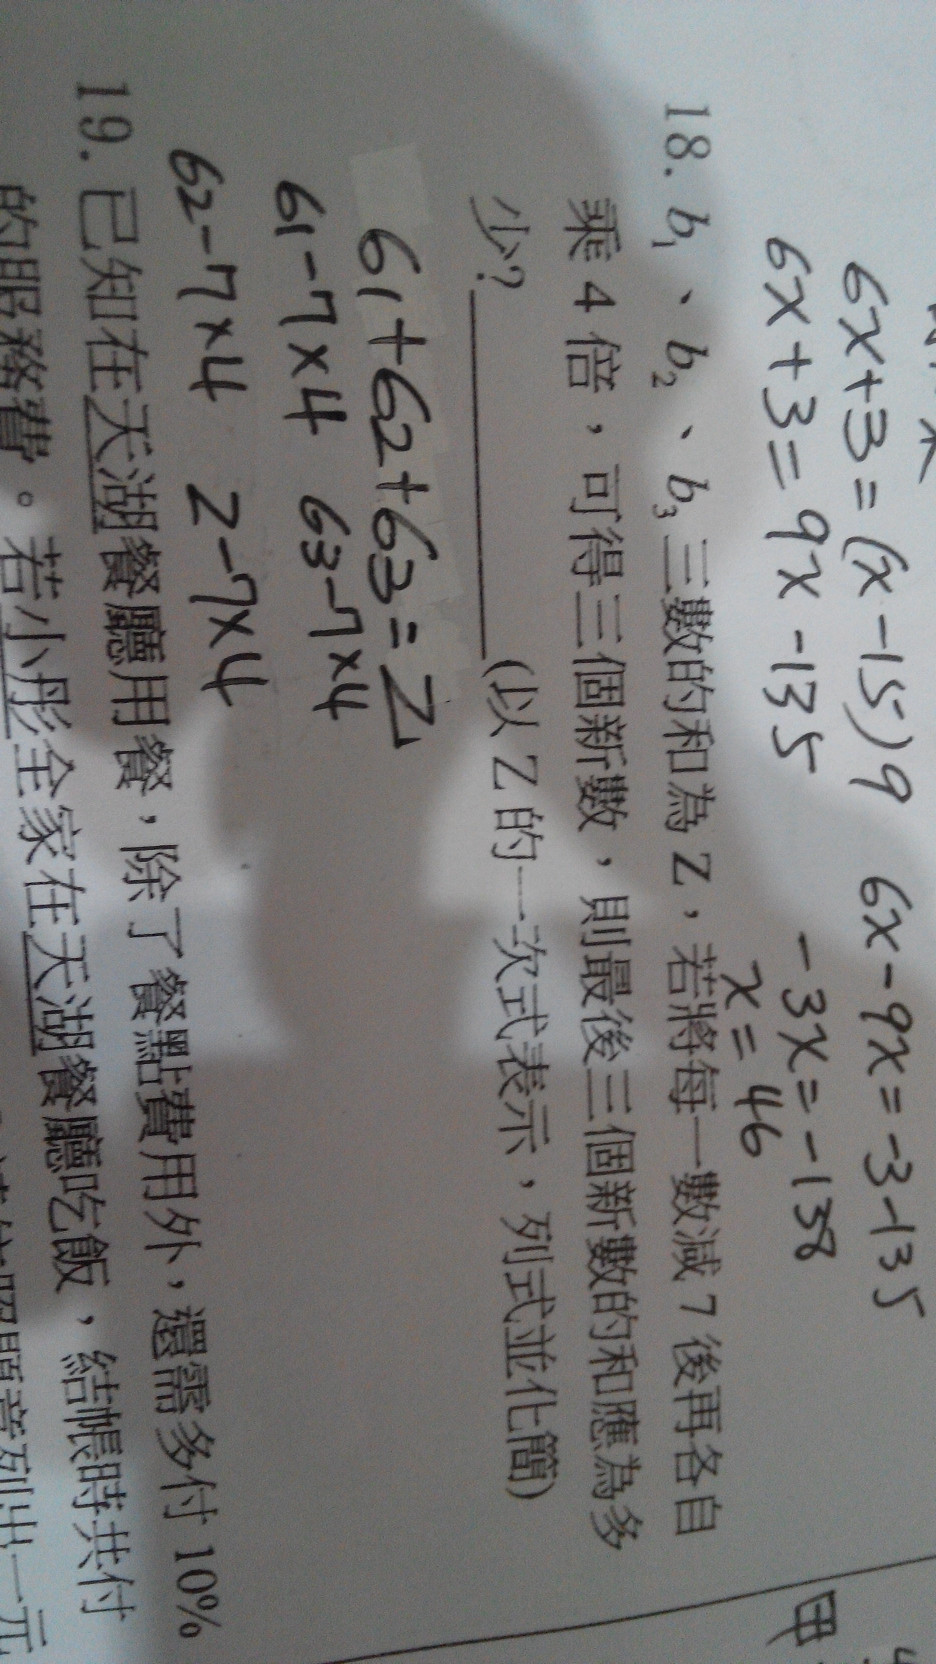 6x+3=(x-15)9 6x-9x=-3-135
6x+3=9x-135 -3x=-138
x=46
18. b₁、b₂、b₃三數的和為 Z，若將每一數減 7 後再各自
乘 4 倍，可得三個新數，則最後三個新數的和應為多
少？＿＿＿＿＿＿(以 Z 的一次式表示，列式並化簡)
61+62+63=Z
61-7×4 63-7×4
62-7×4 Z-7×4
19. 已知在天湖餐廳用餐，除了餐點費用外，還需多付 10%
的服務費。若小彤全家在天湖餐廳吃飯，結帳時共付
列出一元
甲